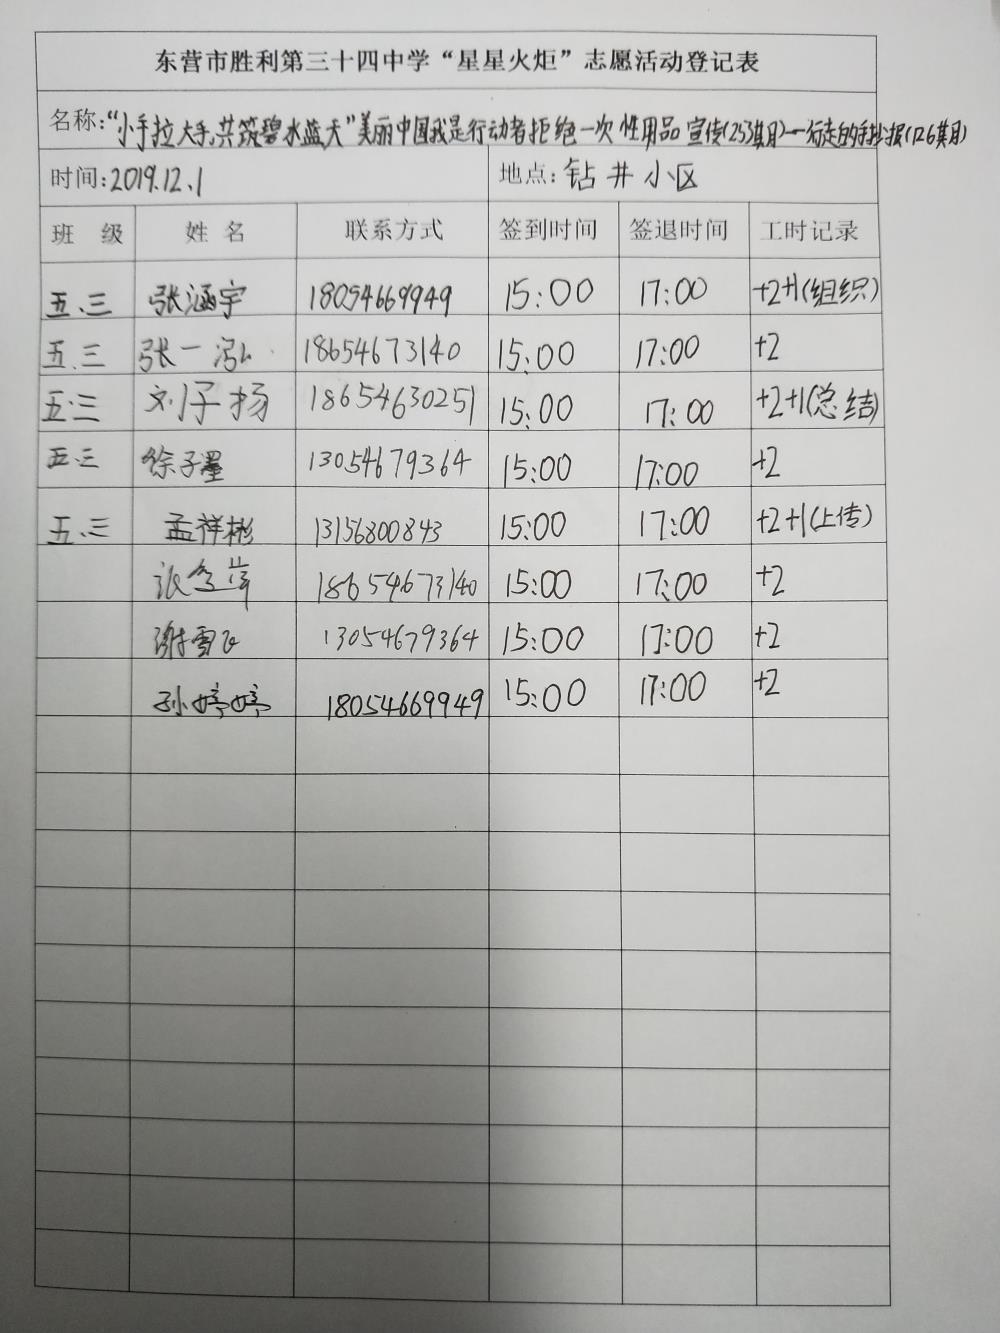 东营市胜利第三十四中学“星星火炬”志愿活动登记表
名称:“小手拉大手,共筑碧水蓝天”美丽中国我是行动者拒绝一次性用品宣传(253期)——行走的手抄报(126期)
时间:2019.12.1 地点:钻井小区
班 级 姓 名 联系方式 签到时间 签退时间 工时记录
五.三 张涵宇 18054669949 15:00 17:00 +2+1(组织)
五.三 张一泓 18654673140 15:00 17:00 +2
五.三 刘子扬 18654630251 15:00 17:00 +2+1(总结)
五.三 徐子墨 13054679364 15:00 17:00 +2
五.三 孟祥彬 13156800843 15:00 17:00 +2+1(上传)
18654673140 15:00 17:00 +2
谢雪飞 13054679364 15:00 17:00 +2
孙婷婷 18054669949 15:00 17:00 +2